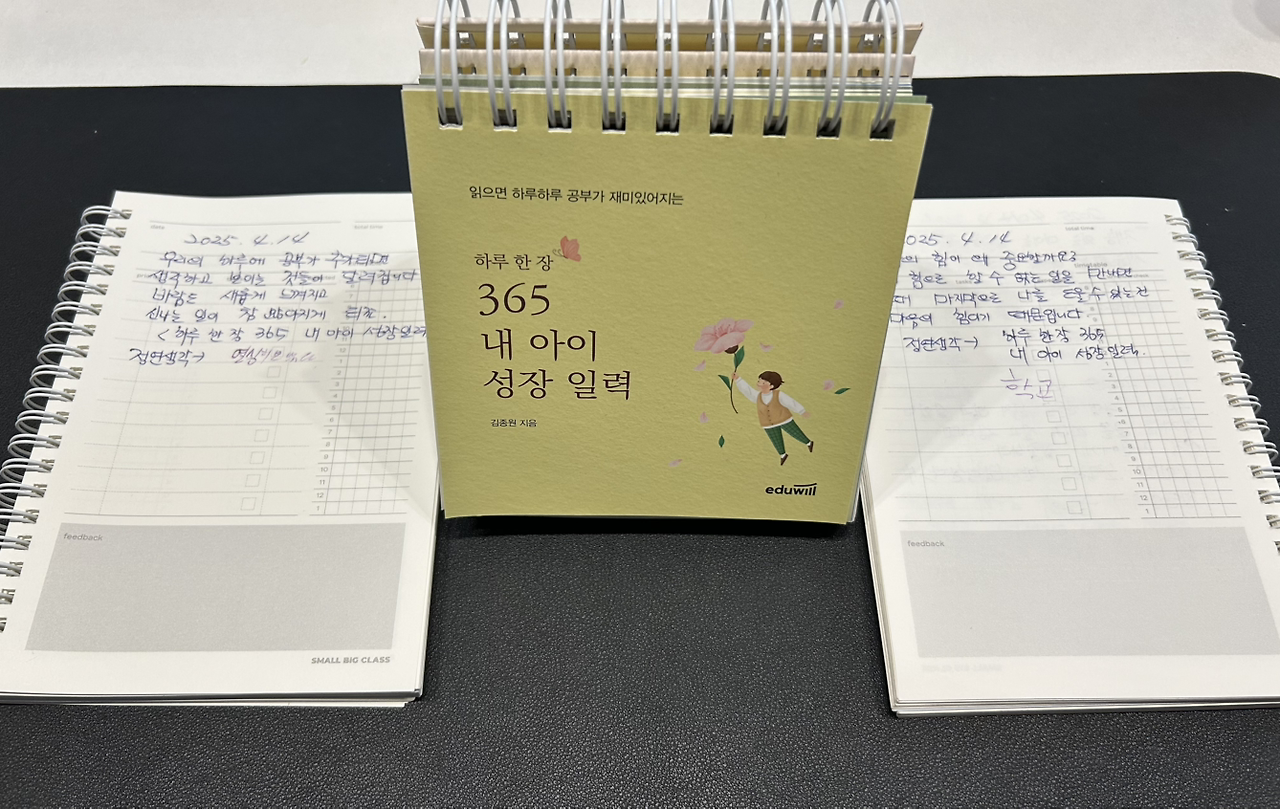 date
total time
2025. 4. 14
우리의 하루에 공부가 추가되면
생각하고 보이는 것들이 달라집니다
바람도 새롭게 느껴지고
신나는 일이 참 많아지게 되죠.
<하루 한 장 365 내 아이 성장일력
정연생각→
feedback
SMALL BIG CLASS
읽으면 하루하루 공부가 재미있어지는
하루 한 장
365
내 아이
성장 일력
김종원 지음
eduwill
total time
025. 4. 14
힘이 왜 중요할까요?
힘으로 할 수 없는 일을 만나면
마지막으로 나를 도울 수 있는 건
마음의 힘이기 때문입니다
하루 한 장 365
정연생각→ 내 아이 성장일력.
학교
feedback